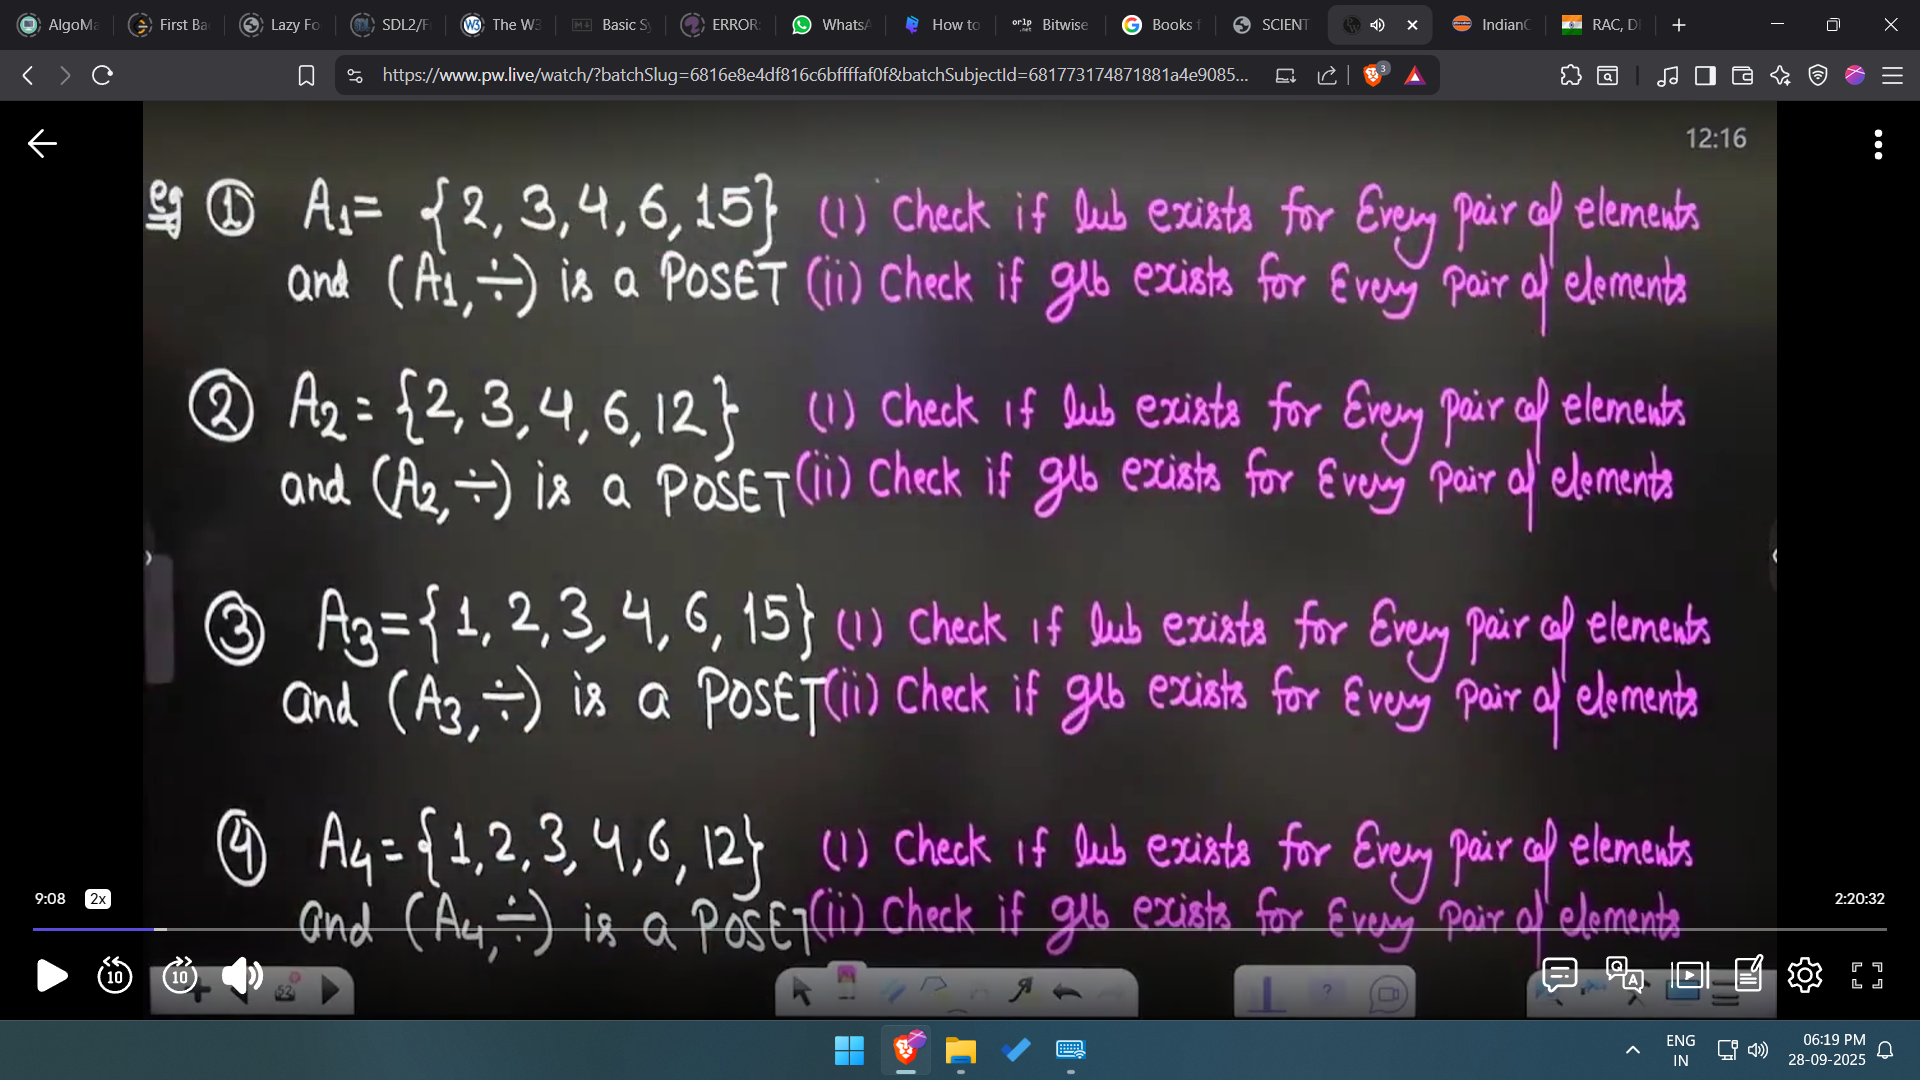 AlgoMa
First Ba
Lazy Fo
SDL2/F
The W3
Basic Sy
ERROR:
WhatsA
How to
Bitwise
Books f
SCIENT
IndianC
RAC, D
https://www.pw.live/watch/?batchSlug=6816e8e4df816c6bffffaf0f&batchSubjectId=681773174871881a4e9085...
3
12:16
eg ① A1= {2, 3, 4, 6, 15} (i) Check if lub exists for Every pair of elements
and (A1, ÷) is a POSET (ii) Check if glb exists for Every pair of elements
② A2 = {2, 3, 4, 6, 12} (i) Check if lub exists for Every pair of elements
and (A2, ÷) is a POSET (ii) Check if glb exists for Every pair of elements
③ A3 = {1, 2, 3, 4, 6, 15} (i) Check if lub exists for Every pair of elements
and (A3, ÷) is a POSET (ii) Check if glb exists for Every pair of elements
④ A4 = {1, 2, 3, 4, 6, 12} (i) Check if lub exists for Every pair of elements
and (A4, ÷) is a POSET (ii) Check if glb exists for Every pair of elements
9:08 2x
2:20:32
10 10
52
ENG
IN
06:19 PM
28-09-2025